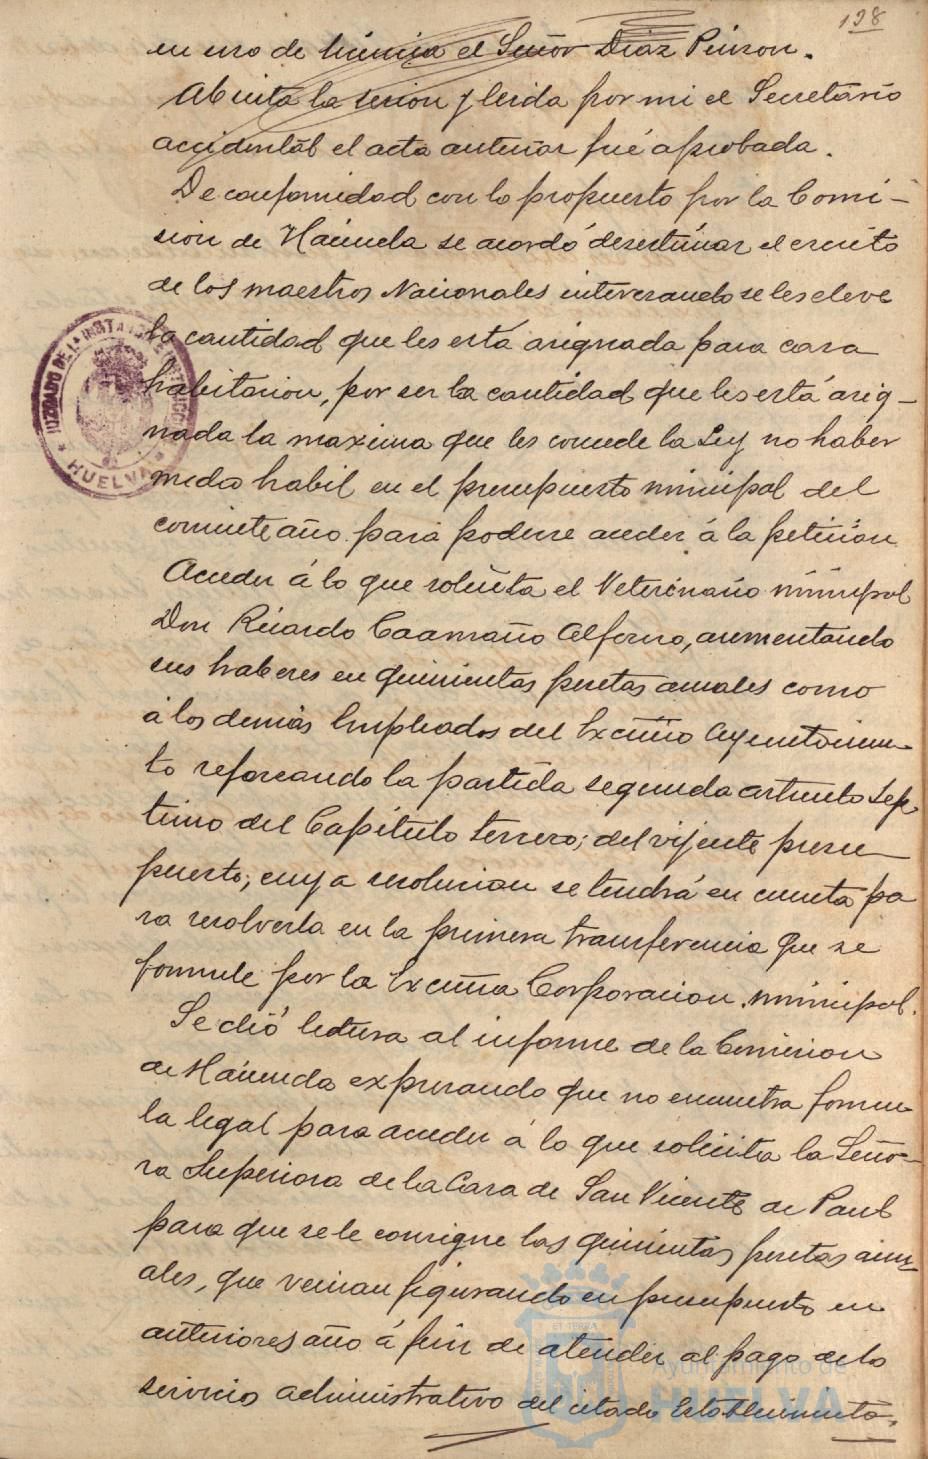 198
en uso de licencia el Señor Díaz Pinzon.
Abierta la sesion y leida por mi el Secretario
accidental el acta anterior fué aprobada.
De conformidad con lo propuesto por la Comi-
sion de Hacienda se acordó desestimar el escrito
de los maestros Nacionales interesando se les eleve
la cantidad que les está asignada para casa
habitacion, por ser la cantidad que les está asig-
nada la maxima que les concede la Ley no haber
medio habil en el presupuesto municipal del
corriente año para poderse acceder á la peticion
Acceder á lo que solicita el Veterinario municipal
Don Ricardo Caamaño Alfonso, aumentando
sus haberes en quinientas pesetas anuales como
á los demás Empleados del Excmo Ayuntamien-
to reforzando la partida segunda articulo Sep-
timo del Capitulo tercero; del vijente presu-
puesto; cuya resolucion se tendrá en cuenta pa
ra resolverla en la primera transferencia que se
formule por la Excma Corporacion municipal.
Se dió lectura al informe de la Comision
de Hacienda expresando que no encuentra formu-
la legal para acceder á lo que solicita la Seño-
ra Superiora de la Casa de San Vicente de Paul
para que se le consigne las quinientas pesetas anu-
ales, que venian figurando en presupuesto en
anteriores año á fin de atender al pago de lo
servicio administrativo del citado Establecimiento.
JUZGADO DE 1ª INSTANCIA E INSTRUCCION
HUELVA
Ayuntamiento de
HUELVA